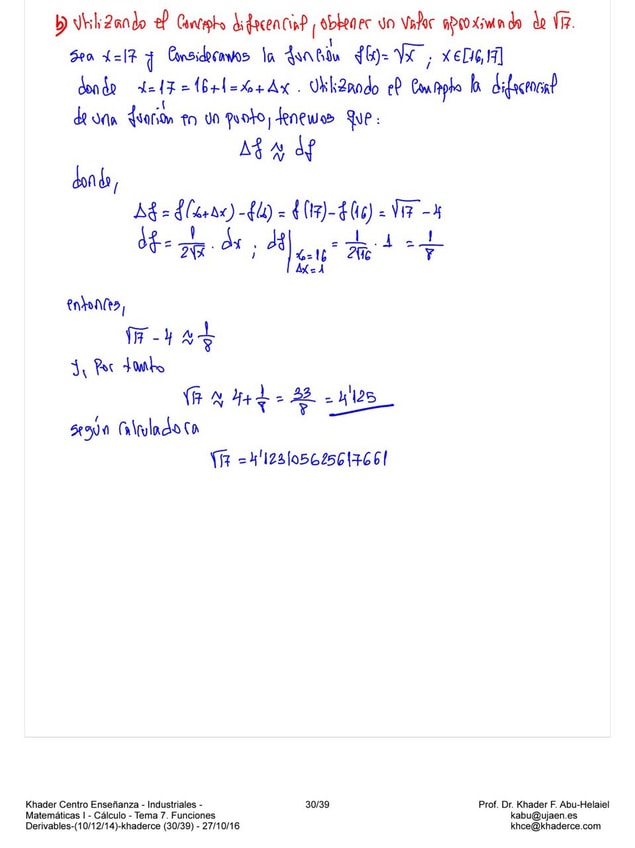 b) Utilizando el concepto diferencial, obtener un valor aproximado de √17.
Sea x=17 y consideramos la función f(x)=√x ; x∈[16,17]
donde x=17=16+1=x₀+Δx. Utilizando el concepto la diferencial
de una función en un punto, tenemos que:
Δf ≈ df
donde,
Δf = f(x₀+Δx)-f(x₀) = f(17)-f(16) = √17 - 4
df = 1/(2√x) · dx ; df|x₀=16 Δx=1 = 1/(2√16) · 1 = 1/8
entonces,
√17 - 4 ≈ 1/8
y, por tanto
√17 ≈ 4 + 1/8 = 33/8 = 4'125
según calculadora
√17 = 4'123105625617661
Khader Centro Enseñanza - Industriales -
Matemáticas I - Cálculo - Tema 7. Funciones
Derivables-(10/12/14)-khaderce (30/39) - 27/10/16
30/39
Prof. Dr. Khader F. Abu-Helaiel
kabu@ujaen.es
khce@khaderce.com